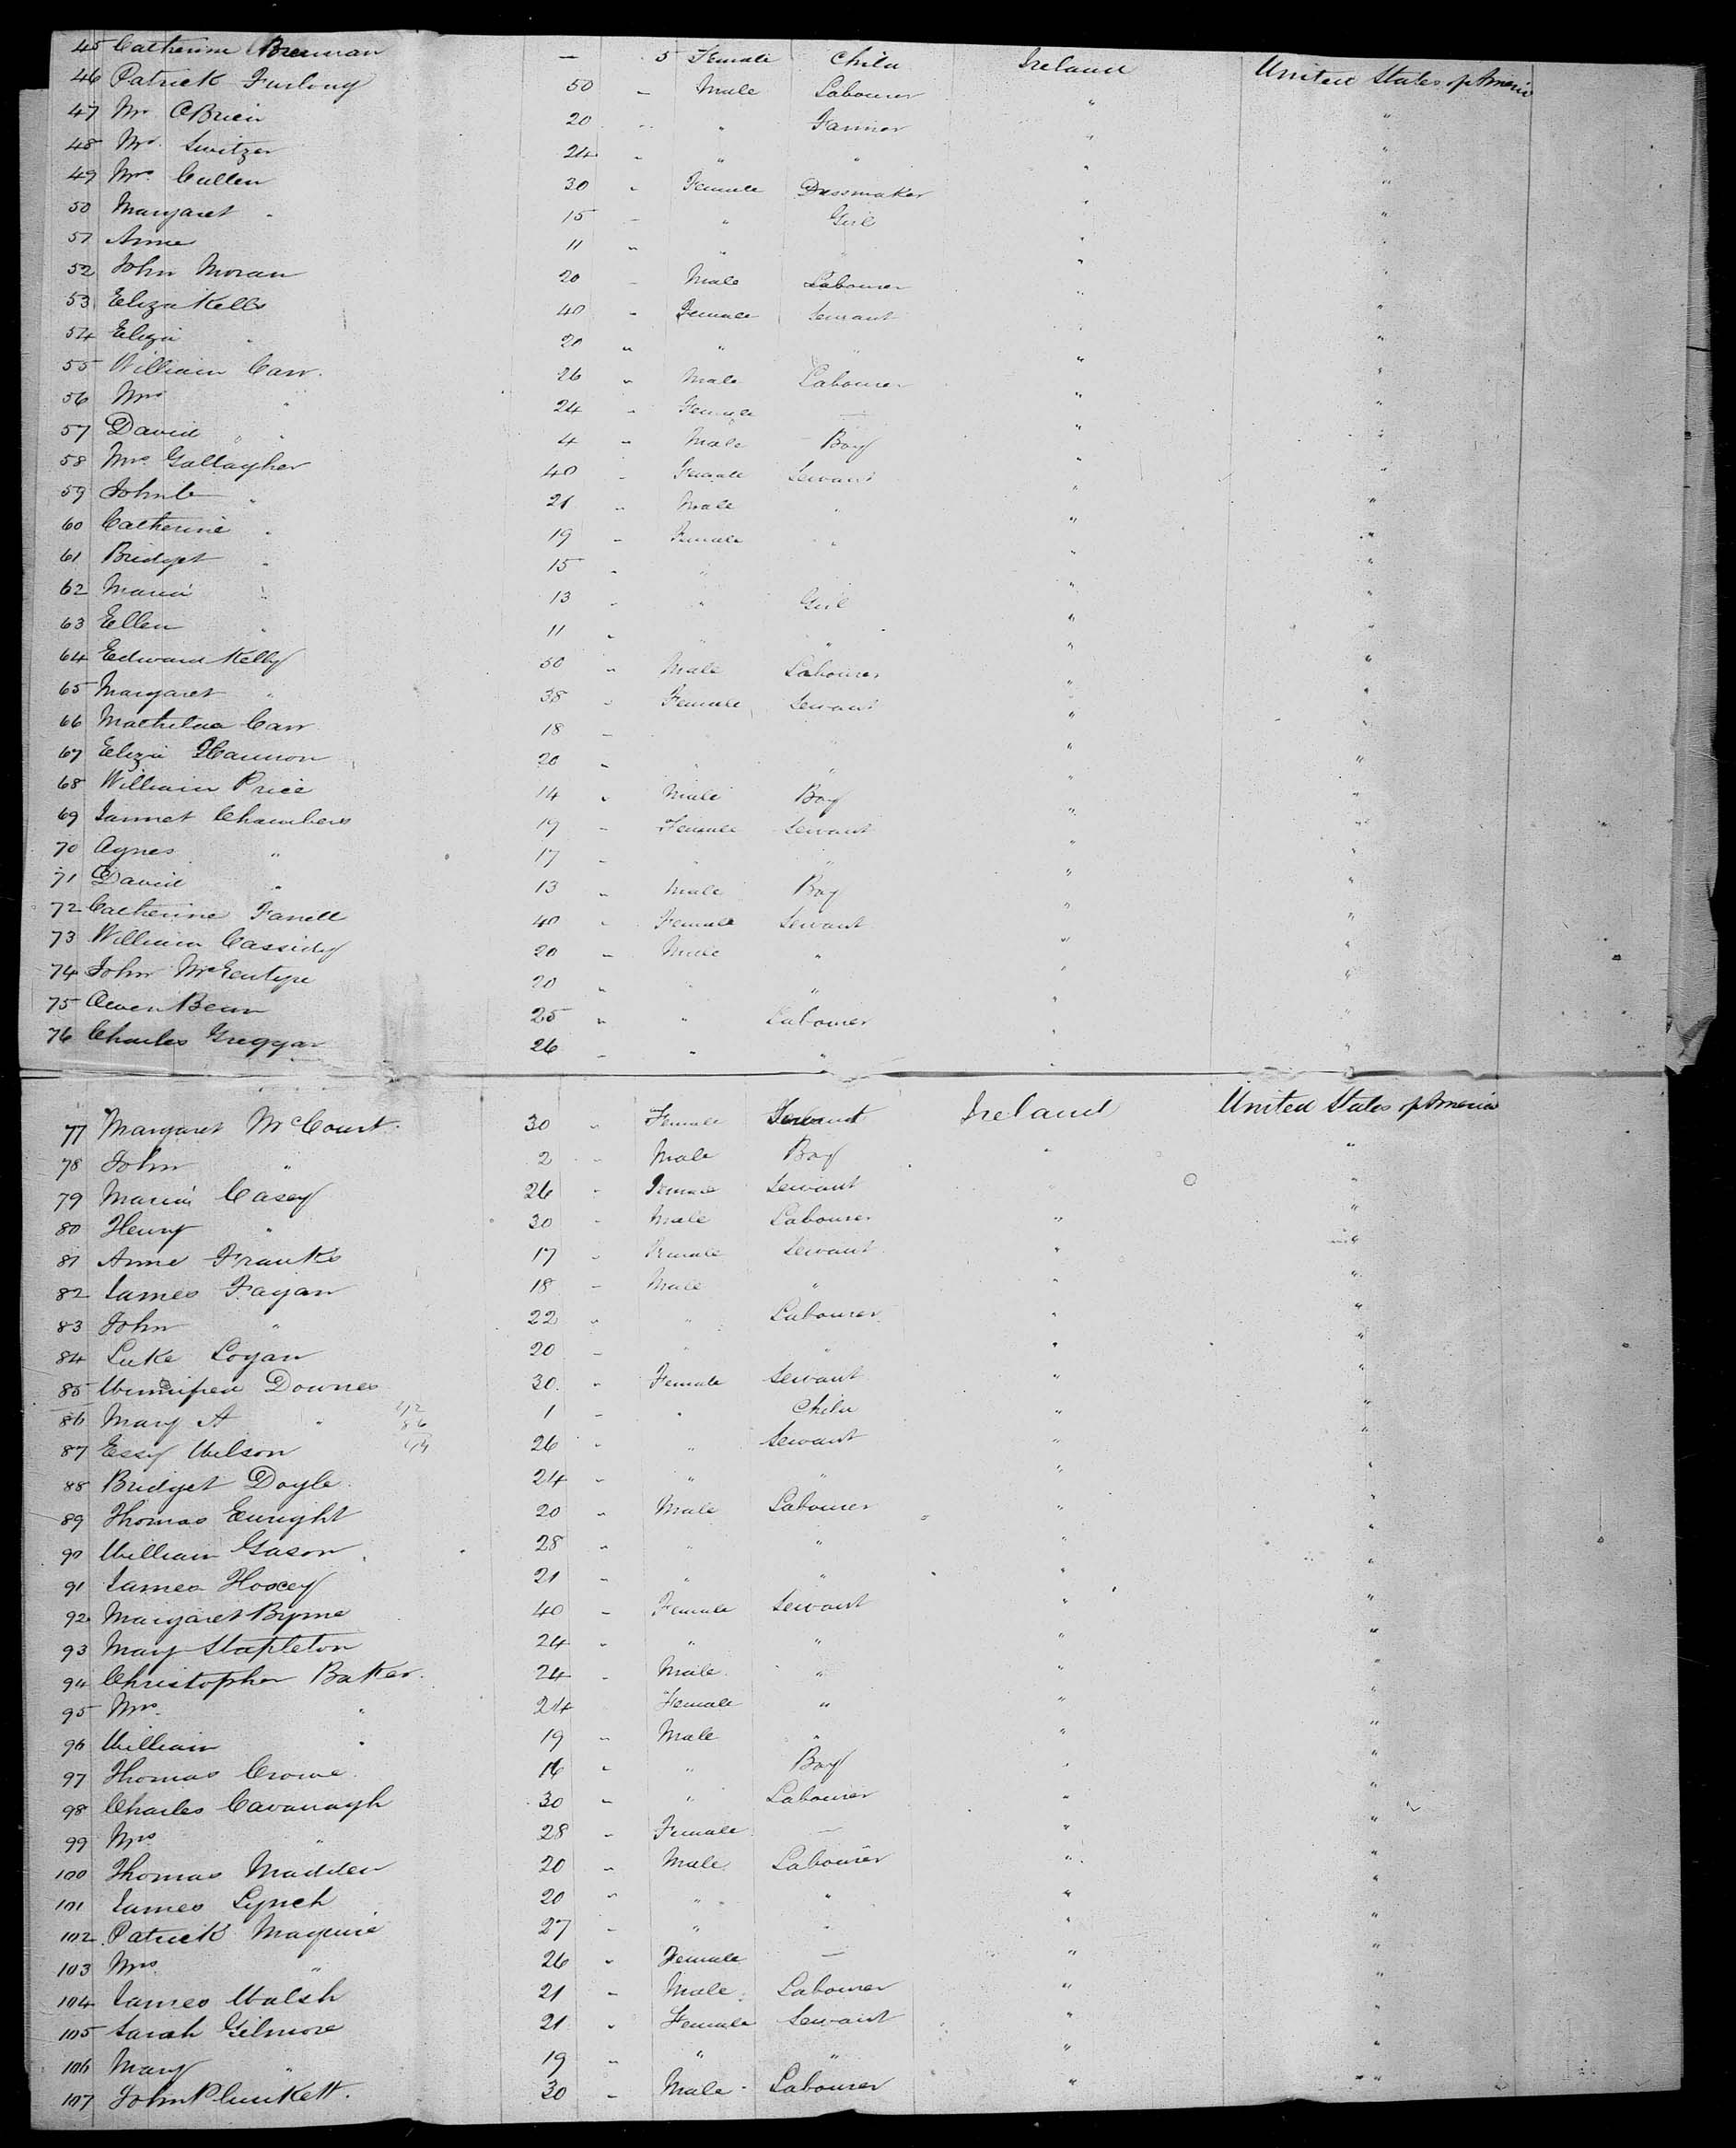 45 Catherine Brennan — 5 Female Child Ireland United States of America
46 Patrick Furlong 50 " Male Labourer " "
47 Mr. OBrien 20 " " Farmer " "
48 Mr. Switzer 24 " " " " "
49 Mrs. Cullen 30 " Female Dressmaker " "
50 Margaret " 15 " " Girl " "
51 Anne 11 " " " " "
52 John Moran 20 " Male Labourer " "
53 Eliza Kells 40 " Female Servant " "
54 Eliza " 20 " " " " "
55 William Carr. 26 " Male Labourer " "
56 Mrs " 24 " Female — " "
57 David " 4 " Male Boy " "
58 Mrs. Gallagher 40 " Female Servant " "
59 John " 21 " Male " " "
60 Catherine " 19 " Female " " "
61 Bridget " 15 " " " "
62 Maria " 13 " " Girl " "
63 Ellen " 11 " " " " "
64 Edward Kelly 50 " Male Labourer " "
65 Margaret " 38 " Female Servant " "
66 Mathilda Carr 18 " " " " "
67 Eliza Hannon 20 " " " " "
68 William Price 14 " Male Boy " "
69 Jannet Chambers 19 " Female Servant " "
70 Agnes " 17 " " " " "
71 David " 13 " Male Boy " "
72 Catherine Farrell 40 " Female Servant " "
73 William Cassidy 20 " Male " " "
74 John McEntyre 20 " " " " "
75 Owen Bean 25 " " Labourer " "
76 Charles Greggar 26 " " " " "
77 Margaret McCourt. 30 " Female Servant Ireland United States of America
78 John " 2 " Male Boy " "
79 Maria Casey 26 " Female Servant " "
80 Henry " 30 " Male Labourer " "
81 Anne Franks 17 " Female Servant " "
82 James Fagan 18 " Male " " "
83 John " 22 " " Labourer " "
84 Luke Logan 20 " " " " "
85 Winnifred Downes 30. " Female Servant " "
86 Mary A " 1 " " Child " "
87 Essy Wilson 26 " " Servant " "
88 Bridget Doyle. 24 " " " " "
89 Thomas Enright 20 " Male Labourer " "
90 William Gason 28 " " " " "
91 James Hoocey 21 " " " " "
92 Margaret Byrne 40 " Female Servant " "
93 Mary Stapleton 24 " " " " "
94 Christopher Baker. 24 " Male " " "
95 Mrs. " 24 Female " " "
96 William " 19 " Male " " "
97 Thomas Crowe. 16 " " Boy " "
98 Charles Cavanagh 30 " " Labourer " "
99 Mrs " 28 " Female — " "
100 Thomas Madden 20 " Male Labourer " "
101 James Lynch 20 " " " " "
102 Patrick Maguire 27 " " " " "
103 Mrs. " 26 " Female — " "
104 James Walsh 21 " Male Labourer " "
105 Sarah Gilmore 21 " Female Servant " "
106 Mary " 19 " " " " "
107 John Plunkett. 30 " Male Labourer " "